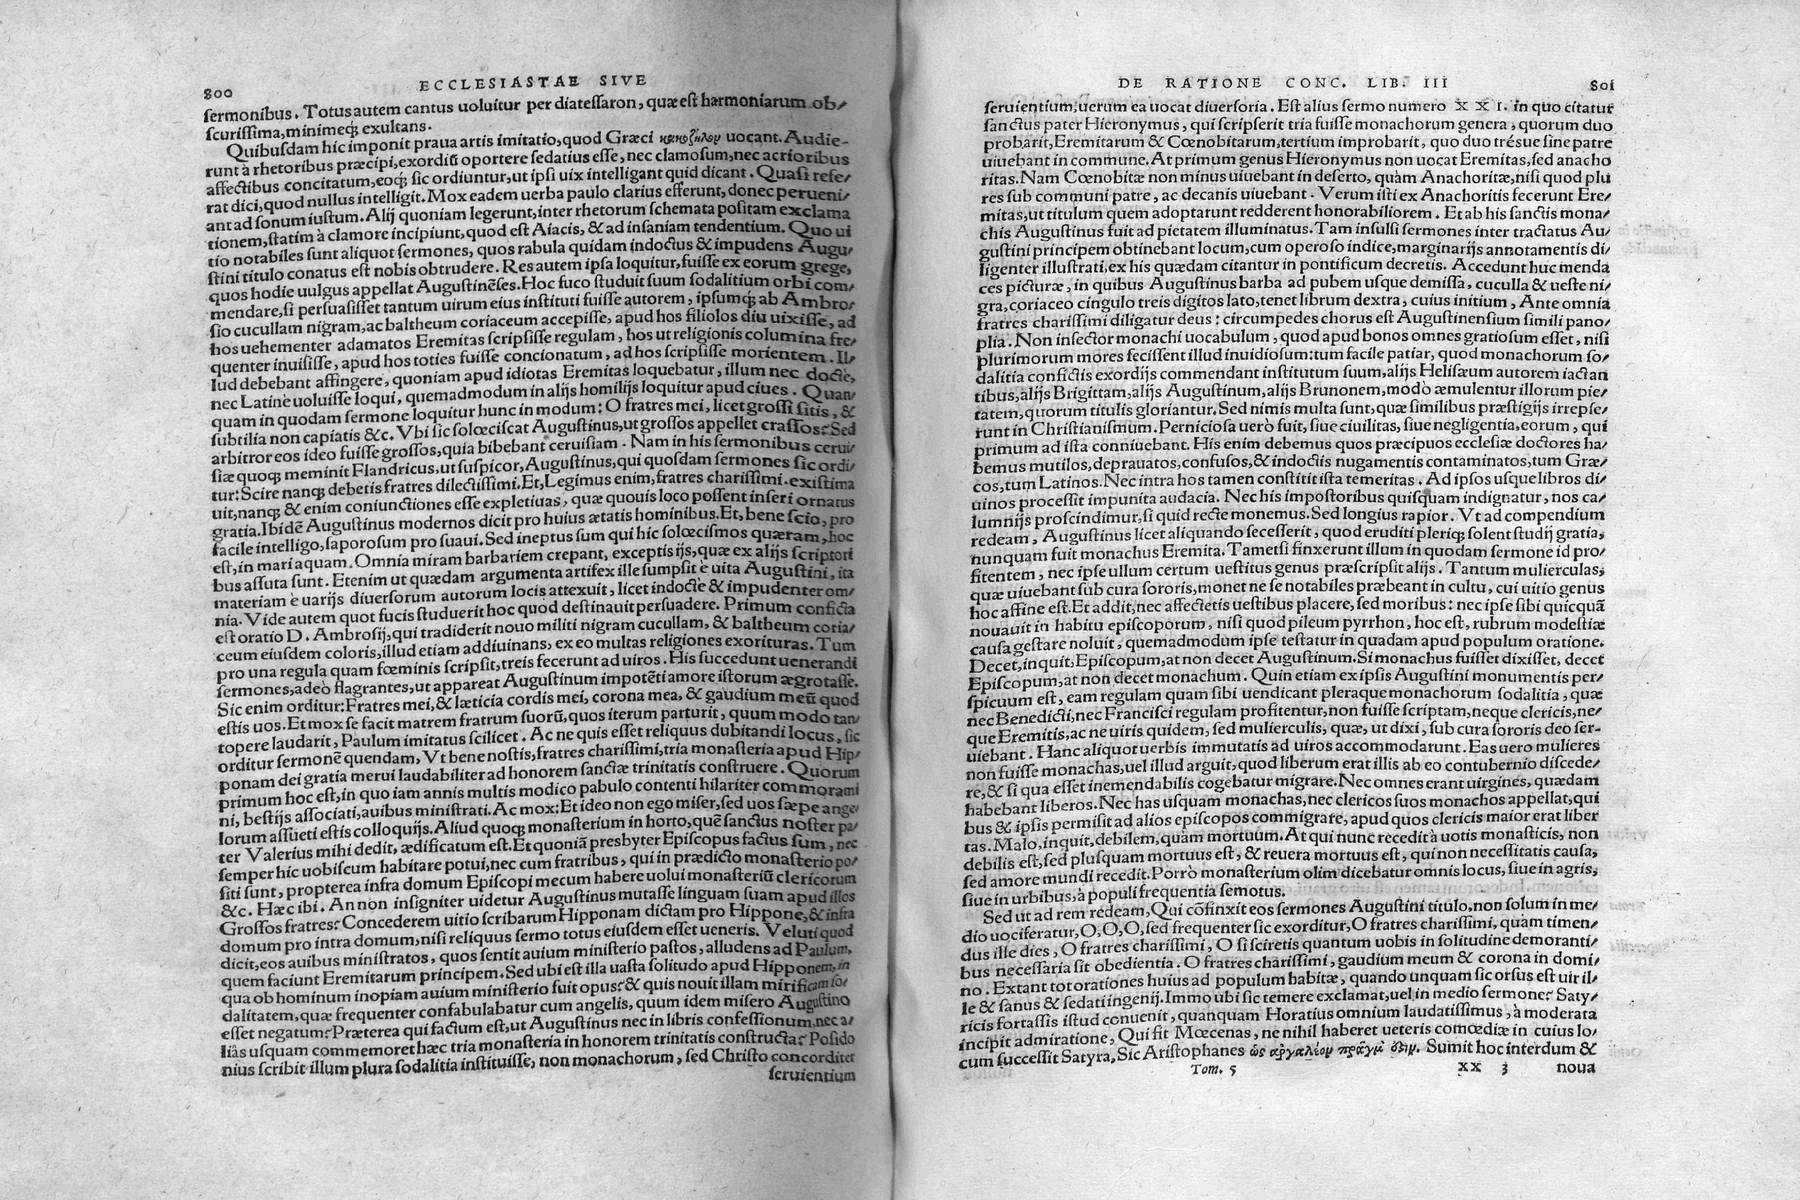 800 ECCLESIASTAE SIVE
ſermonibus. Totus autem cantus uoluitur per diateſſaron, quæ eſt harmoniarum ob-
ſcuriſſima, minimeq́; exultans.
Quibuſdam hîc imponit praua artis imitatio, quod Græci κακοζηλομ uocant. Audie-
runt à rhetoribus præcipi, exordiũ oportere ſedatius eſſe, nec clamoſum, nec acrioribus
affectibus concitatum, eoq́; ſic ordiuntur, ut ipſi uix intelligant quid dicant. Quaſi refe-
rat dici, quod nullus intelligit. Mox eadem uerba paulo clarius efferunt, donec perueni-
ant ad ſonum iuſtum. Alij quoniam legerunt, inter rhetorum ſchemata poſitam exclama
tionem, ſtatim à clamore incipiunt, quod eſt Aiacis, & ad inſaniam tendentium. Quo ui
tio notabiles ſunt aliquot ſermones, quos rabula quidam indoctus & impudens Augu-
ſtini titulo conatus eſt nobis obtrudere. Res autem ipſa loquitur, fuiſſe ex eorum grege,
quos hodie uulgus appellat Auguſtinẽſes. Hoc fuco ſtuduit ſuum ſodalitium orbi com-
mendare, ſi perſuaſiſſet tantum uirum eius inſtituti fuiſſe autorem, ipſumq́; ab Ambro-
ſio cucullam nigram, ac baltheum coriaceum accepiſſe, apud hos filiolos diu uixiſſe, ad
hos uehementer adamatos Eremitas ſcripſiſſe regulam, hos ut religionis columina fre-
quenter inuiſiſſe, apud hos toties fuiſſe concionatum, ad hos ſcripſiſſe morientem. Il-
lud debebant affingere, quoniam apud idiotas Eremitas loquebatur, illum nec docte,
nec Latine uoluiſſe loqui, quemadmodum in alijs homilijs loquitur apud ciues. Quan-
quam in quodam ſermone loquitur hunc in modum: O fratres mei, licet groſſi ſitis, &
ſubtilia non capiatis &c. Vbi ſic ſolœciſcat Auguſtinus, ut groſſos appellet craſſos? Sed
arbitror eos ideo fuiſſe groſſos, quia bibebant ceruiſiam. Nam in his ſermonibus cerui-
ſiæ quoq́; meminit Flandricus, ut ſuſpicor, Auguſtinus, qui quoſdam ſermones ſic ordi-
tur: Scire nanq́; debetis fratres dilectiſſimi. Et, Legimus enim, fratres chariſſimi. exiſtima
uit, nanq́; & enim coniunctiones eſſe expletiuas, quæ quouis loco poſſent inſeri ornatus
gratia. Ibidẽ Auguſtinus modernos dicit pro huius ætatis hominibus. Et, bene ſcio, pro
facile intelligo, ſaporoſum pro ſuaui. Sed ineptus ſum qui hîc ſolœciſmos quæram, hoc
eſt, in mari aquam. Omnia miram barbariem crepant, exceptis ijs, quæ ex alijs ſcriptori
bus aſſuta ſunt. Etenim ut quædam argumenta artifex ille ſumpſit è uita Auguſtini, ita
materiam è uarijs diuerſorum autorum locis attexuit, licet indocte & impudenter om-
nia. Vide autem quot fucis ſtuduerit hoc quod deſtinauit perſuadere. Primum conficta
eſt oratio D. Ambroſij, qui tradiderit nouo militi nigram cucullam, & baltheum coria-
ceum eiuſdem coloris, illud etiam addiuinans, ex eo multas religiones exorituras. Tum
pro una regula quam fœminis ſcripſit, treis fecerunt ad uiros. His ſuccedunt uenerandi
ſermones, adeò flagrantes, ut appareat Auguſtinum impotẽti amore iſtorum ægrotaſſe.
Sic enim orditur: Fratres mei, & læticia cordis mei, corona mea, & gaudium meũ quod
eſtis uos. Et mox ſe facit matrem fratrum ſuorũ, quos iterum parturit, quum modo tan-
topere laudarit, Paulum imitatus ſcilicet. Ac ne quis eſſet reliquus dubitandi locus, ſic
orditur ſermonẽ quendam, Vt bene noſtis, fratres chariſſimi, tria monaſteria apud Hip-
ponam dei gratia merui laudabiliter ad honorem ſanctæ trinitatis conſtruere. Quorum
primum hoc eſt, in quo iam annis multis modico pabulo contenti hilariter commorami
ni, beſtijs aſſociati, auibus miniſtrati. Ac mox: Et ideo non ego miſer, ſed uos ſæpe ange-
lorum aſſueti eſtis colloquijs. Aliud quoq́; monaſterium in horto, quẽ ſanctus noſter pa-
ter Valerius mihi dedit, ædificatum eſt. Et quoniã presbyter Epiſcopus factus ſum, nec
ſemper hîc uobiſcum habitare potui, nec cum fratribus, qui in prædicto monaſterio po-
ſiti ſunt, propterea infra domum Epiſcopi mecum habere uolui monaſteriũ clericorum
&c. Hæc ibi. An non inſigniter uidetur Auguſtinus mutaſſe linguam ſuam apud illos
Groſſos fratres? Concederem uitio ſcribarum Hipponam dictam pro Hippone, & infra
domum pro intra domum, niſi reliquus ſermo totus eiuſdem eſſet ueneris. Veluti quod
dicit, eos auibus miniſtratos, quos ſentit auium miniſterio paſtos, alludens ad Paulum,
quem faciunt Eremitarum principem. Sed ubi eſt illa uaſta ſolitudo apud Hipponem, in
qua ob hominum inopiam auium miniſterio fuit opus? & quis nouit illam mirificam ſo-
dalitatem, quæ frequenter confabulabatur cum angelis, quum idem miſero Auguſtino
eſſet negatum? Præterea qui factum eſt, ut Auguſtinus nec in libris confeſſionum, nec a-
liâs uſquam commemoret hæc tria monaſteria in honorem trinitatis conſtructa? Poſido
nius ſcribit illum plura ſodalitia inſtituiſſe, non monachorum, ſed Chriſto concorditer
ſeruientium
DE RATIONE CONC. LIB. III 801
ſeruientium, uerum ea uocat diuerſoria. Eſt alius ſermo numero XXI. in quo citatur
ſanctus pater Hieronymus, qui ſcripſerit tria fuiſſe monachorum genera, quorum duo
probârit, Eremitarum & Cœnobitarum, tertium improbarit, quo duo trésue ſine patre
uiuebant in commune. At primum genus Hieronymus non uocat Eremitas, ſed anacho
ritas. Nam Cœnobitæ non minus uiuebant in deſerto, quàm Anachoritæ, niſi quod plu
res ſub communi patre, ac decanis uiuebant. Verum iſti ex Anachoritis fecerunt Ere-
mitas, ut titulum quem adoptarunt redderent honorabiliorem. Et ab his ſanctis mona-
chis Auguſtinus fuit ad pietatem illuminatus. Tam inſulſi ſermones inter tractatus Au-
guſtini principem obtinebant locum, cum operoſo indice, marginarijs annotamentis di-
ligenter illuſtrati, ex his quædam citantur in pontificum decretis. Accedunt huc menda
ces picturæ, in quibus Auguſtinus barba ad pubem uſque demiſſa, cuculla & ueſte ni-
gra, coriaceo cingulo treis digitos lato, tenet librum dextra, cuius initium, Ante omnia
fratres chariſſimi diligatur deus: circumpedes chorus eſt Auguſtinenſium ſimili pano-
plia. Non inſector monachi uocabulum, quod apud bonos omnes gratioſum eſſet, niſi
plurimorum mores feciſſent illud inuidioſum: tum facile patiar, quod monachorum ſo-
dalitia confictis exordijs commendant inſtitutum ſuum, alijs Heliſæum autorem iactan
tibus, alijs Brigittam, alijs Auguſtinum, alijs Brunonem, modò æmulentur illorum pie-
tatem, quorum titulis gloriantur. Sed nimis multa ſunt, quæ ſimilibus præſtigijs irrepſe-
runt in Chriſtianiſmum. Pernicioſa uerò fuit, ſiue ciuilitas, ſiue negligentia, eorum, qui
primum ad iſta conniuebant. His enim debemus quos præcipuos eccleſiæ doctores ha-
bemus mutilos, deprauatos, confuſos, & indoctis nugamentis contaminatos, tum Græ-
cos, tum Latinos. Nec intra hos tamen conſtitit iſta temeritas. Ad ipſos uſque libros di-
uinos proceſſit impunita audacia. Nec his impoſtoribus quiſquam indignatur, nos ca-
lumnijs proſcindimur, ſi quid recte monemus. Sed longius rapior. Vt ad compendium
redeam, Auguſtinus licet aliquando ſeceſſerit, quod eruditi pleriq́; ſolent ſtudij gratia,
nunquam fuit monachus Eremita. Tametſi finxerunt illum in quodam ſermone id pro-
fitentem, nec ipſe ullum certum ueſtitus genus præſcripſit alijs. Tantum mulierculas,
quæ uiuebant ſub cura ſororis, monet ne ſe notabiles præbeant in cultu, cui uitio genus
hoc affine eſt. Et addit, nec affectetis ueſtibus placere, ſed moribus: nec ipſe ſibi quicquã
nouauit in habitu epiſcoporum, niſi quod pileum pyrrhon, hoc eſt, rubrum modeſtiæ
cauſa geſtare noluit, quemadmodum ipſe teſtatur in quadam apud populum oratione.
Decet, inquit, Epiſcopum, at non decet Auguſtinum. Si monachus fuiſſet dixiſſet, decet
Epiſcopum, at non decet monachum. Quin etiam ex ipſis Auguſtini monumentis per-
ſpicuum eſt, eam regulam quam ſibi uendicant pleraque monachorum ſodalitia, quæ
nec Benedicti, nec Franciſci regulam profitentur, non fuiſſe ſcriptam, neque clericis, ne-
que Eremitis, ac ne uiris quidem, ſed mulierculis, quæ, ut dixi, ſub cura ſororis deo ſer-
uiebant. Hanc aliquot uerbis immutatis ad uiros accommodarunt. Eas uero mulieres
non fuiſſe monachas, uel illud arguit, quod liberum erat illis ab eo contubernio diſcede-
re, & ſi qua eſſet inemendabilis cogebatur migrare. Nec omnes erant uirgines, quædam
habebant liberos. Nec has uſquam monachas, nec clericos ſuos monachos appellat, qui
bus & ipſis permiſit ad alios epiſcopos commigrare, apud quos clericis maior erat liber
tas. Malo, inquit, debilem, quàm mortuum. At qui nunc recedit à uotis monaſticis, non
debilis eſt, ſed pluſquam mortuus eſt, & reuera mortuus eſt, qui non neceſſitatis cauſa,
ſed amore mundi recedit. Porrò monaſterium olim dicebatur omnis locus, ſiue in agris,
ſiue in urbibus, à populi frequentia ſemotus.
Sed ut ad rem redeam, Qui cõfinxit eos ſermones Auguſtini titulo, non ſolum in me-
dio uociferatur, O, O, O, ſed frequenter ſic exorditur, O fratres chariſſimi, quàm timen-
dus ille dies, O fratres chariſſimi, O ſi ſciretis quantum uobis in ſolitudine demoranti-
bus neceſſaria ſit obedientia. O fratres chariſſimi, gaudium meum & corona in domi-
no. Extant tot orationes huius ad populum habitæ, quando unquam ſic orſus eſt uir il-
le & ſanus & ſedati ingenij. Immo ubi ſic temere exclamat, uel in medio ſermone? Saty-
ricis fortaſſis iſtud conuenit, quanquam Horatius omnium laudatiſſimus, à moderata
incipit admiratione, Qui fit Mœcenas, ne nihil haberet ueteris comœdiæ in cuius lo-
cum ſucceſſit Satyra, Sic Ariſtophanes ὡς ἀργαλέομ πρᾶγμ᾽ ὅξιμ. Sumit hoc interdum &
Tom. 5 XX 3 noua